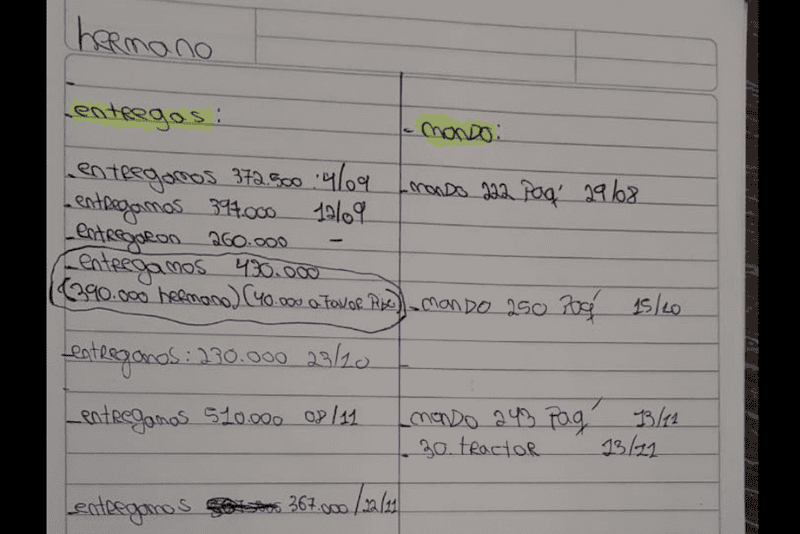 hermano
- entregas:
- mando:
- entregamos 372.500 : 4/09
- mando 222 Paq' 29/08
- entregamos 397.000 12/09
- entregaron 260.000 -
- entregamos 430.000
(390.000 hermano) (40.000 a favor Pipe)
- mando 250 Paq' 15/10
- entregamos: 230.000 23/10
- entregamos 510.000 08/11
- mando 243 Paq' 13/11
- 30. tractor 13/11
- entregamos 367.000 / 22/11